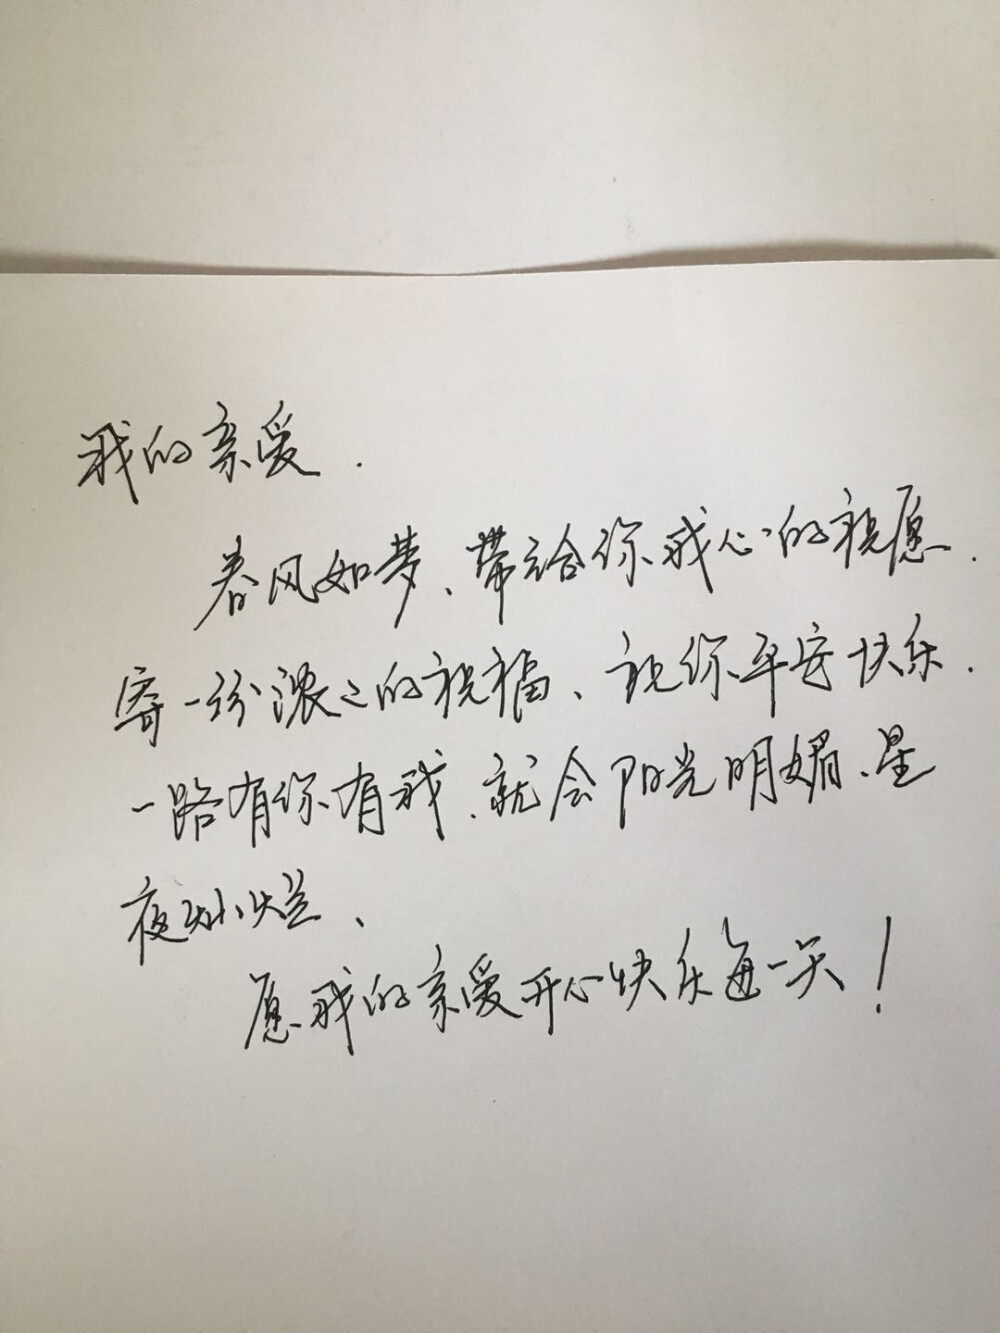 我的亲爱.
春风如梦、带给你我心的祝愿.
寄一份浓々的祝福、祝你平安快乐.
一路有你有我.就会阳光明媚、星
夜灿烂、
愿我的亲爱开心快乐每一天!